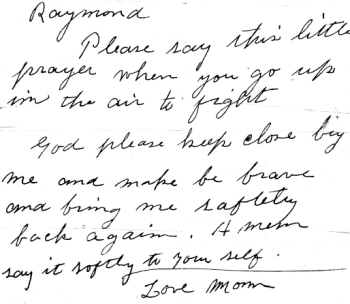 Raymond
Please say this little
prayer when you go up
im the air to fight
God please keep close biy
me and make be brave
and bring me saftety
back again. A mem
say it softly to your self.
Love Mom